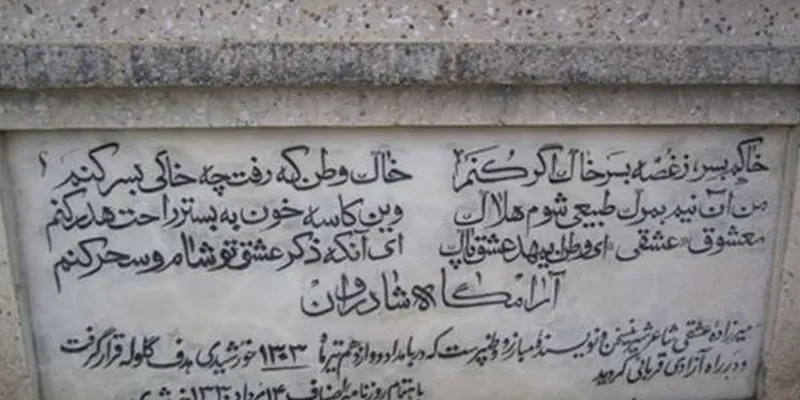 خاکم بسر، ز غصه بسر خاک اگر کنم خاک وطن که رفت چه خاکی بسر کنم ؟
من آن نیم بمرگ طبیعی شوم هلاک وین کاسه خون به بستر راحت هدر کنم
معشوق «عشقی» ای وطن ای عشق پاک ای آنکه ذکر عشق تو شام و سحر کنم
آرامگاه شادروان
میرزاده عشقی شاعر شیرین سخن و نویسنده مبارز و وطنپرست که در بامداد دوازدهم تیرماه ۱۳۰۳ خورشیدی هدف گلوله قرار گرفت
و در راه آزادی قربانی گردید
با هتمام روزنامه اصناف ۱۴ مرداد